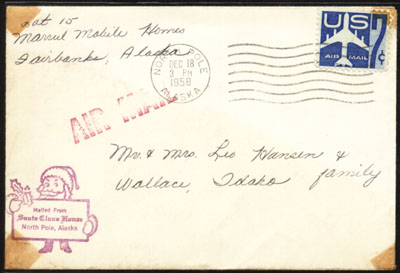 Lot 15
Marvel Mobile Homes
Fairbanks, Alaska
NORTH POLE
DEC 18
3 PM
1958
ALASKA
US
AIR MAIL
7¢
AIR MAIL
Mr. & Mrs. Leo Hansen &
family
Wallace, Idaho
Mailed From
Santa Claus House
North Pole, Alaska